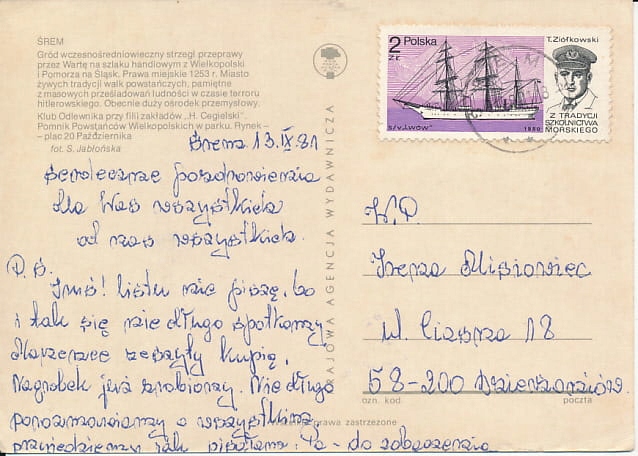 ŚREM
Gród wczesnośredniowieczny strzegł przeprawy
przez Wartę na szlaku handlowym z Wielkopolski
i Pomorza na Śląsk. Prawa miejskie 1253 r. Miasto
żywych tradycji walk powstańczych, pamiętne
z masowych prześladowań ludności w czasie terroru
hitlerowskiego. Obecnie duży ośrodek przemysłowy.
Klub Odlewnika przy filii zakładów „H. Cegielski".
Pomnik Powstańców Wielkopolskich w parku. Rynek –
– plac 20 Października
fot. S. Jabłońska
13.IX.81
Serdeczne pozdrowienia
dla Was wszystkich
od nas wszystkich.
P.S.
Imś! listu nie piszę, bo
i tak się nie długo spotkamy
zeszyty kupię.
Nagrobek już zrobiony. Nie długo
porozmawiamy o wszystkim
przyjedziemy jak pisałam. Pa - do zobaczenia
KRAJOWA AGENCJA WYDAWNICZA
prawa zastrzeżone
2 zł
Polska
T. Ziółkowski
s/v „Lwów"
1980
Z TRADYCJI
SZKOLNICTWA
MORSKIEGO
W.P.
Irena Misiowiec
ul. Ciasna 18
58-200 Dzierżoniów
ozn. kod.
poczta